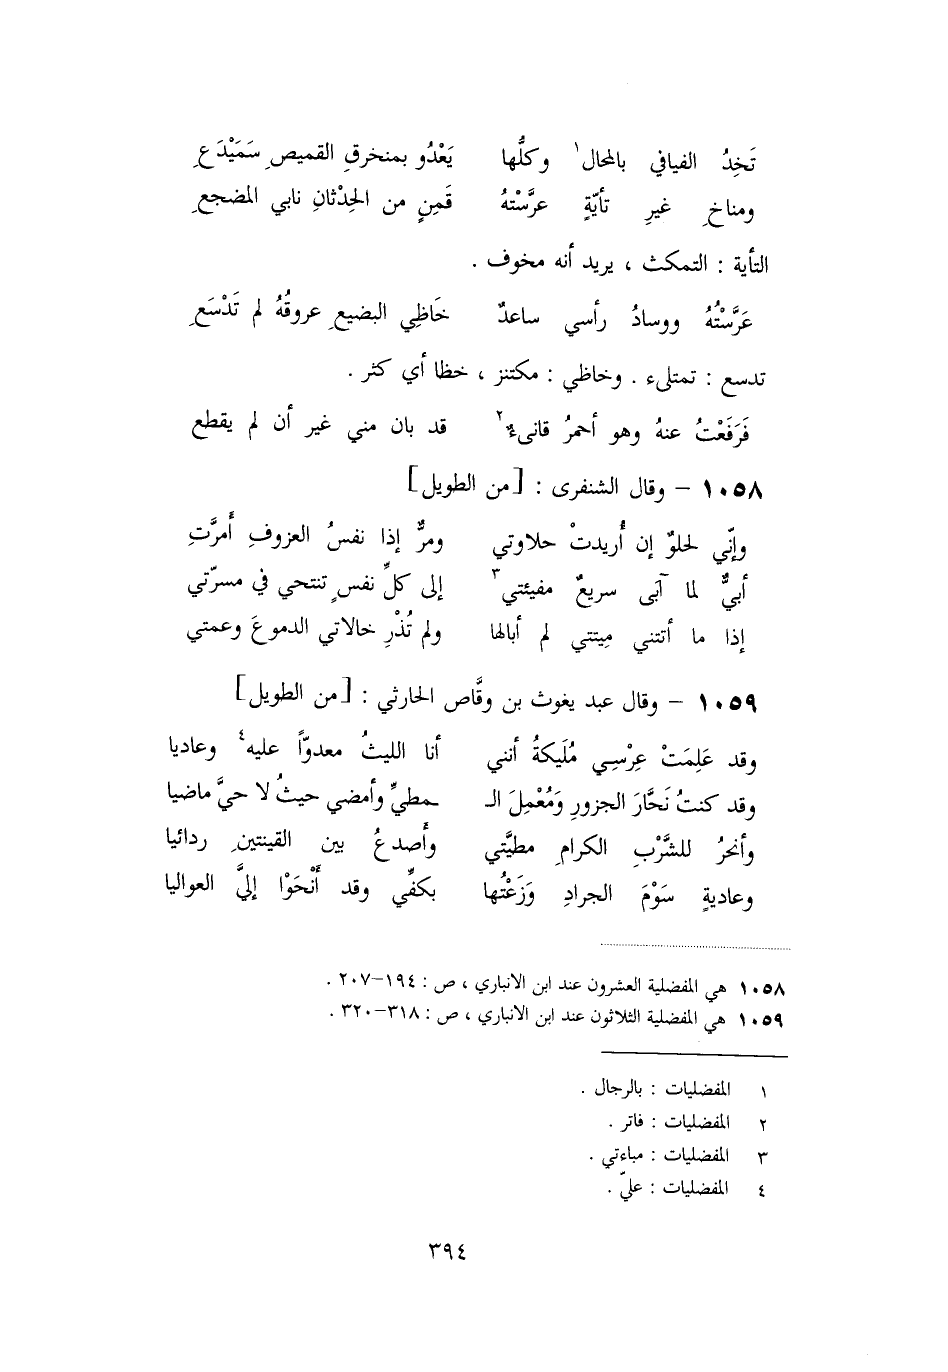 تَخِدُ الفيافي بالمحال١ وكلُّها يَعْدُو بمنخرقِ القميصِ سَمَيْدَعِ
ومناخِ غيرِ تأيّةٍ عرَّسْتهُ قَمِنٍ من الحِدْثانِ نابي المضجعِ
التأية : التمكث ، يريد أنه مخوف .
عَرَّسْتُهُ ووسادُ رأسي ساعدٌ خَاظِي البضيعِ عروقُهُ لم تَدْسَعِ
تدسع : تمتلىء . وخاظي : مكتنز ، خظا أي كثر .
فَرَفَعْتُ عنهُ وهو أحمرُ قانىءٌ٢ قد بان مني غير أن لم يقطع
١٠٥٨ – وقال الشنفرى : [من الطويل]
وإنّي لحلوٌ إن أُريدتْ حلاوتي ومرٌّ إذا نفسُ العزوفِ أَمرَّتِ
أبيٌّ لما آبَى سريعٌ مفيئتي٣ إلى كلِّ نفسٍ تنتحي في مسرّتي
إذا ما أتتني مِيتتي لم أبالها ولم تُذْرِ خالاتي الدموعَ وعمتي
١٠٥٩ – وقال عبد يغوث بن وقَّاص الحارثي : [من الطويل]
وقد عَلِمَتْ عِرْسِي مُلَيكةُ أنني أنا الليثُ معدوّاً عليه٤ وعاديا
وقد كنتُ نَحَّارَ الجزورِ وَمُعْمِلَ الـ ـمطيِّ وأمضي حيثُ لا حيَّ ماضيا
وأنحرُ للشَّرْبِ الكرامِ مطيَّتي وأَصدعُ بين القينتينِ ردائيا
وعاديةٍ سَوْمَ الجرادِ وَزَعْتُها بكفِّي وقد أَنْحَوْا إليَّ العواليا
١٠٥٨ هي المفضلية العشرون عند ابن الانباري ، ص : ١٩٤–٢٠٧ .
١٠٥٩ هي المفضلية الثلاثون عند ابن الانباري ، ص : ٣١٨–٣٢٠ .
١ المفضليات : بالرجال .
٢ المفضليات : فاتر .
٣ المفضليات : مباءتي .
٤ المفضليات : عليّ .
٣٩٤